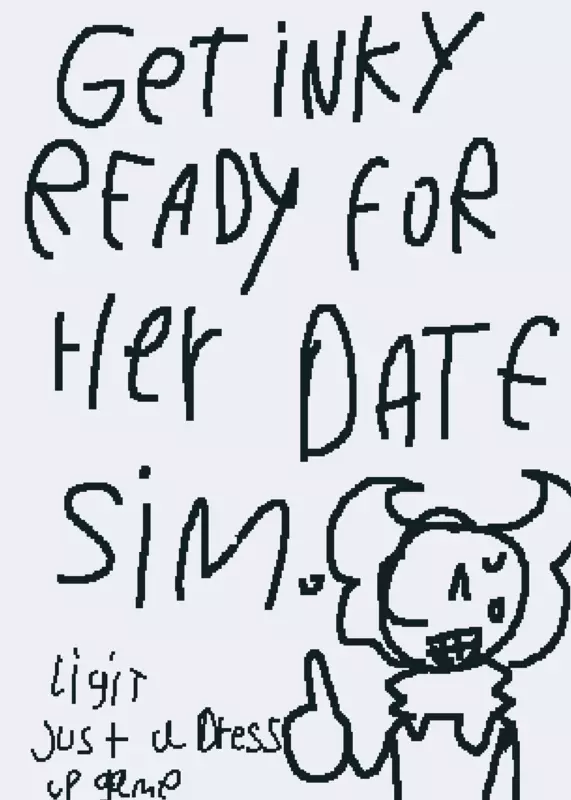 GeT iNKY
READY FOR
Her DATE
SiM.
Ligit
Just a Dress
up geme